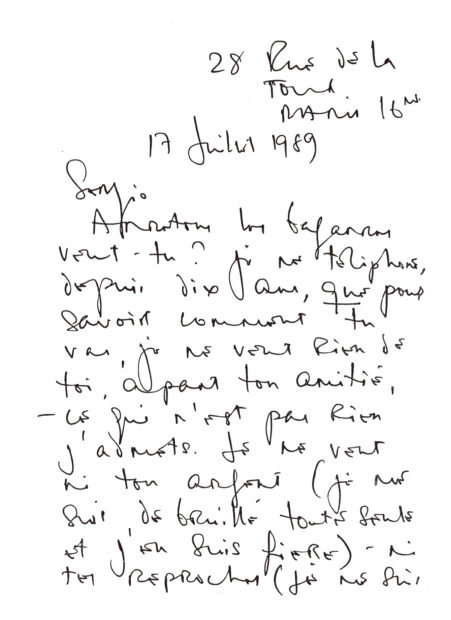 28 Rue de la
Tour
PARIS 16me
17 Juillet 1989
Sergio
Arretons les bagarres
veux-tu? je ne téléphone,
depuis dix ans, que pour
savoir comment tu
vas, je ne veux Rien de
toi, à part ton amitié,
- ce qui n'est pas Rien
j'admets. Je ne veux
ni ton argent (je me
suis débrouillé toute seule
et j'en suis fière) - ni
tes REPROCHES (je ne suis